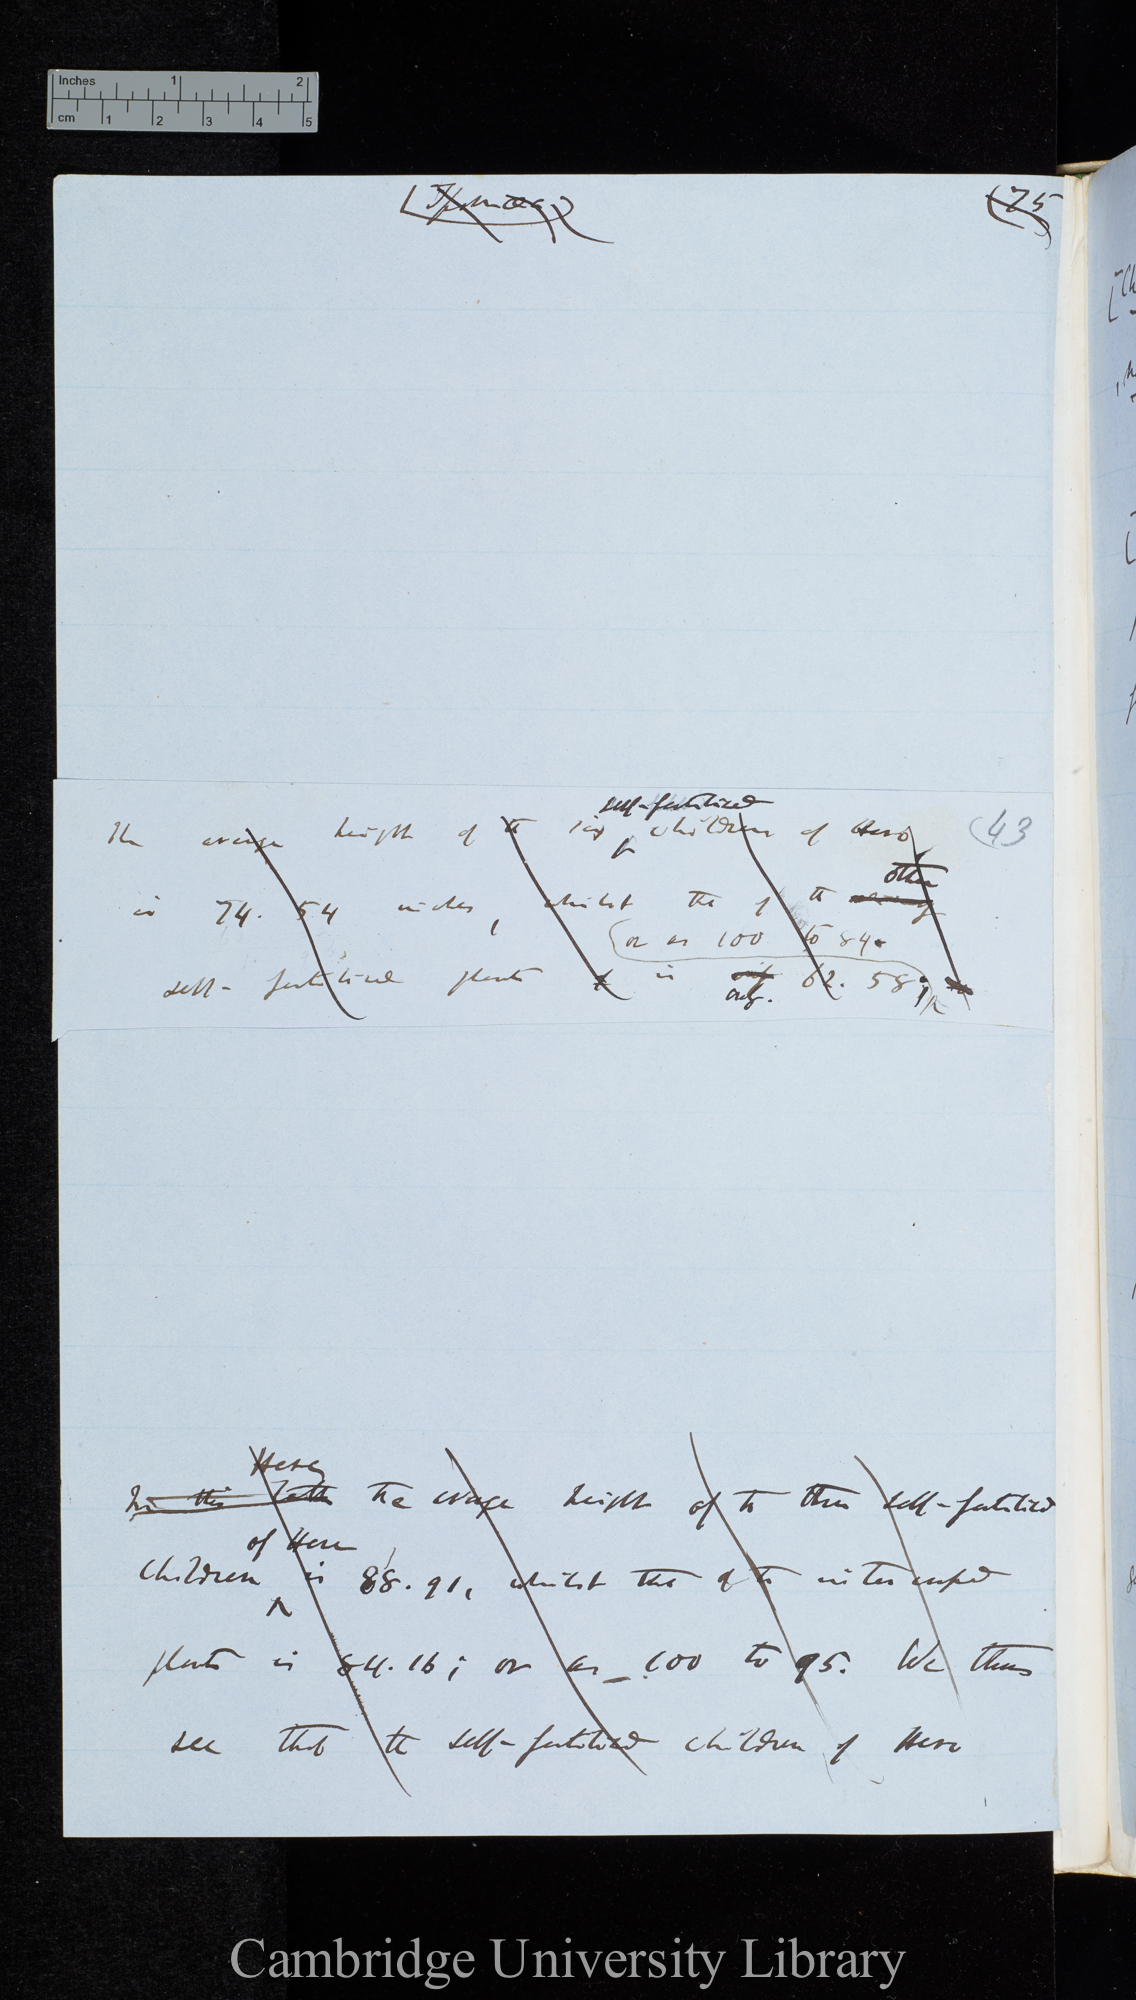 Inches 1 2
cm 1 2 3 4 5
(Ipomœa)
(75
self-fertilised
The average height of the six children of Hero
(43
other
is 74.54 inches, whilst that of the
(or as 100 to 84.
self-fertilised plants is 62.58;
avg.
Here
In this latter the average height of the three self-fertilised
of Hero
children is 88.91, whilst that of the intercrossed
plants is 84.16; or as 100 to 95. We thus
see that the self-fertilised children of Hero
Cambridge University Library